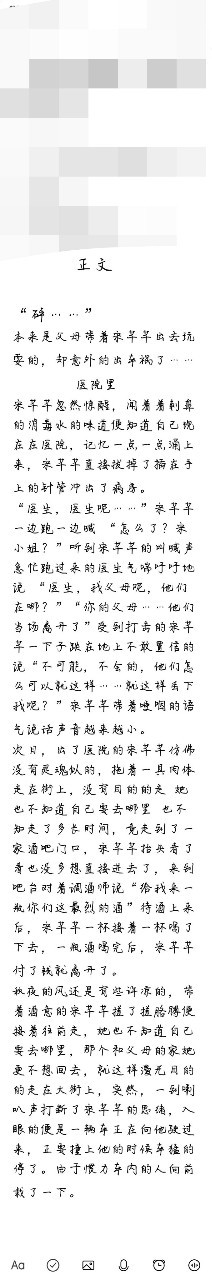 正文
“砰……”
本来是父母带着宋芊芊出去玩
耍的，却意外的出车祸了……
医院里
宋芊芊忽然惊醒，闻着着刺鼻
的消毒水的味道便知道自己现
在在医院，记忆一点一点涌上
来，宋芊芊直接拔掉了插在手
上的针管冲出了病房。
“医生，医生呢……”宋芊芊
一边跑一边喊 “怎么了？宋
小姐？”听到宋芊芊的叫喊声
急忙跑过来的医生气喘吁吁地
说 “医生，我父母呢，他们
在哪？”“你的父母……他们
当场离开了”受到打击的宋芊
芊一下子跌在地上不敢置信的
说“不可能，不会的，他们怎
么可以就这样……就这样丢下
我呢？”宋芊芊带着哽咽的语
气说话声音越来越小。
次日，出了医院的宋芊芊仿佛
没有灵魂似的，拖着一具肉体
走在街上，没有目的的走 她
也不知道自己要去哪里 也不
知走了多长时间，竟走到了一
家酒吧门口，宋芊芊抬头看了
看也没多想直接进去了，来到
吧台对着调酒师说“给我来一
瓶你们这最烈的酒”待酒上来
后，宋芊芊一杯接着一杯喝了
下去，一瓶酒喝完后，宋芊芊
付了钱就离开了。
秋夜的风还是有些许凉的，带
着酒意的宋芊芊搓了搓胳膊便
接着往前走，她也不知道自己
要去哪里，那个和父母的家她
更不想回去，就这样漫无目的
的走在大街上，突然，一到喇
叭声打断了宋芊芊的思绪，入
眼的便是一辆车正在向他驶过
来，正要撞上他的时候车猛的
停了。由于惯力车内的人向前
栽了一下。
Aa